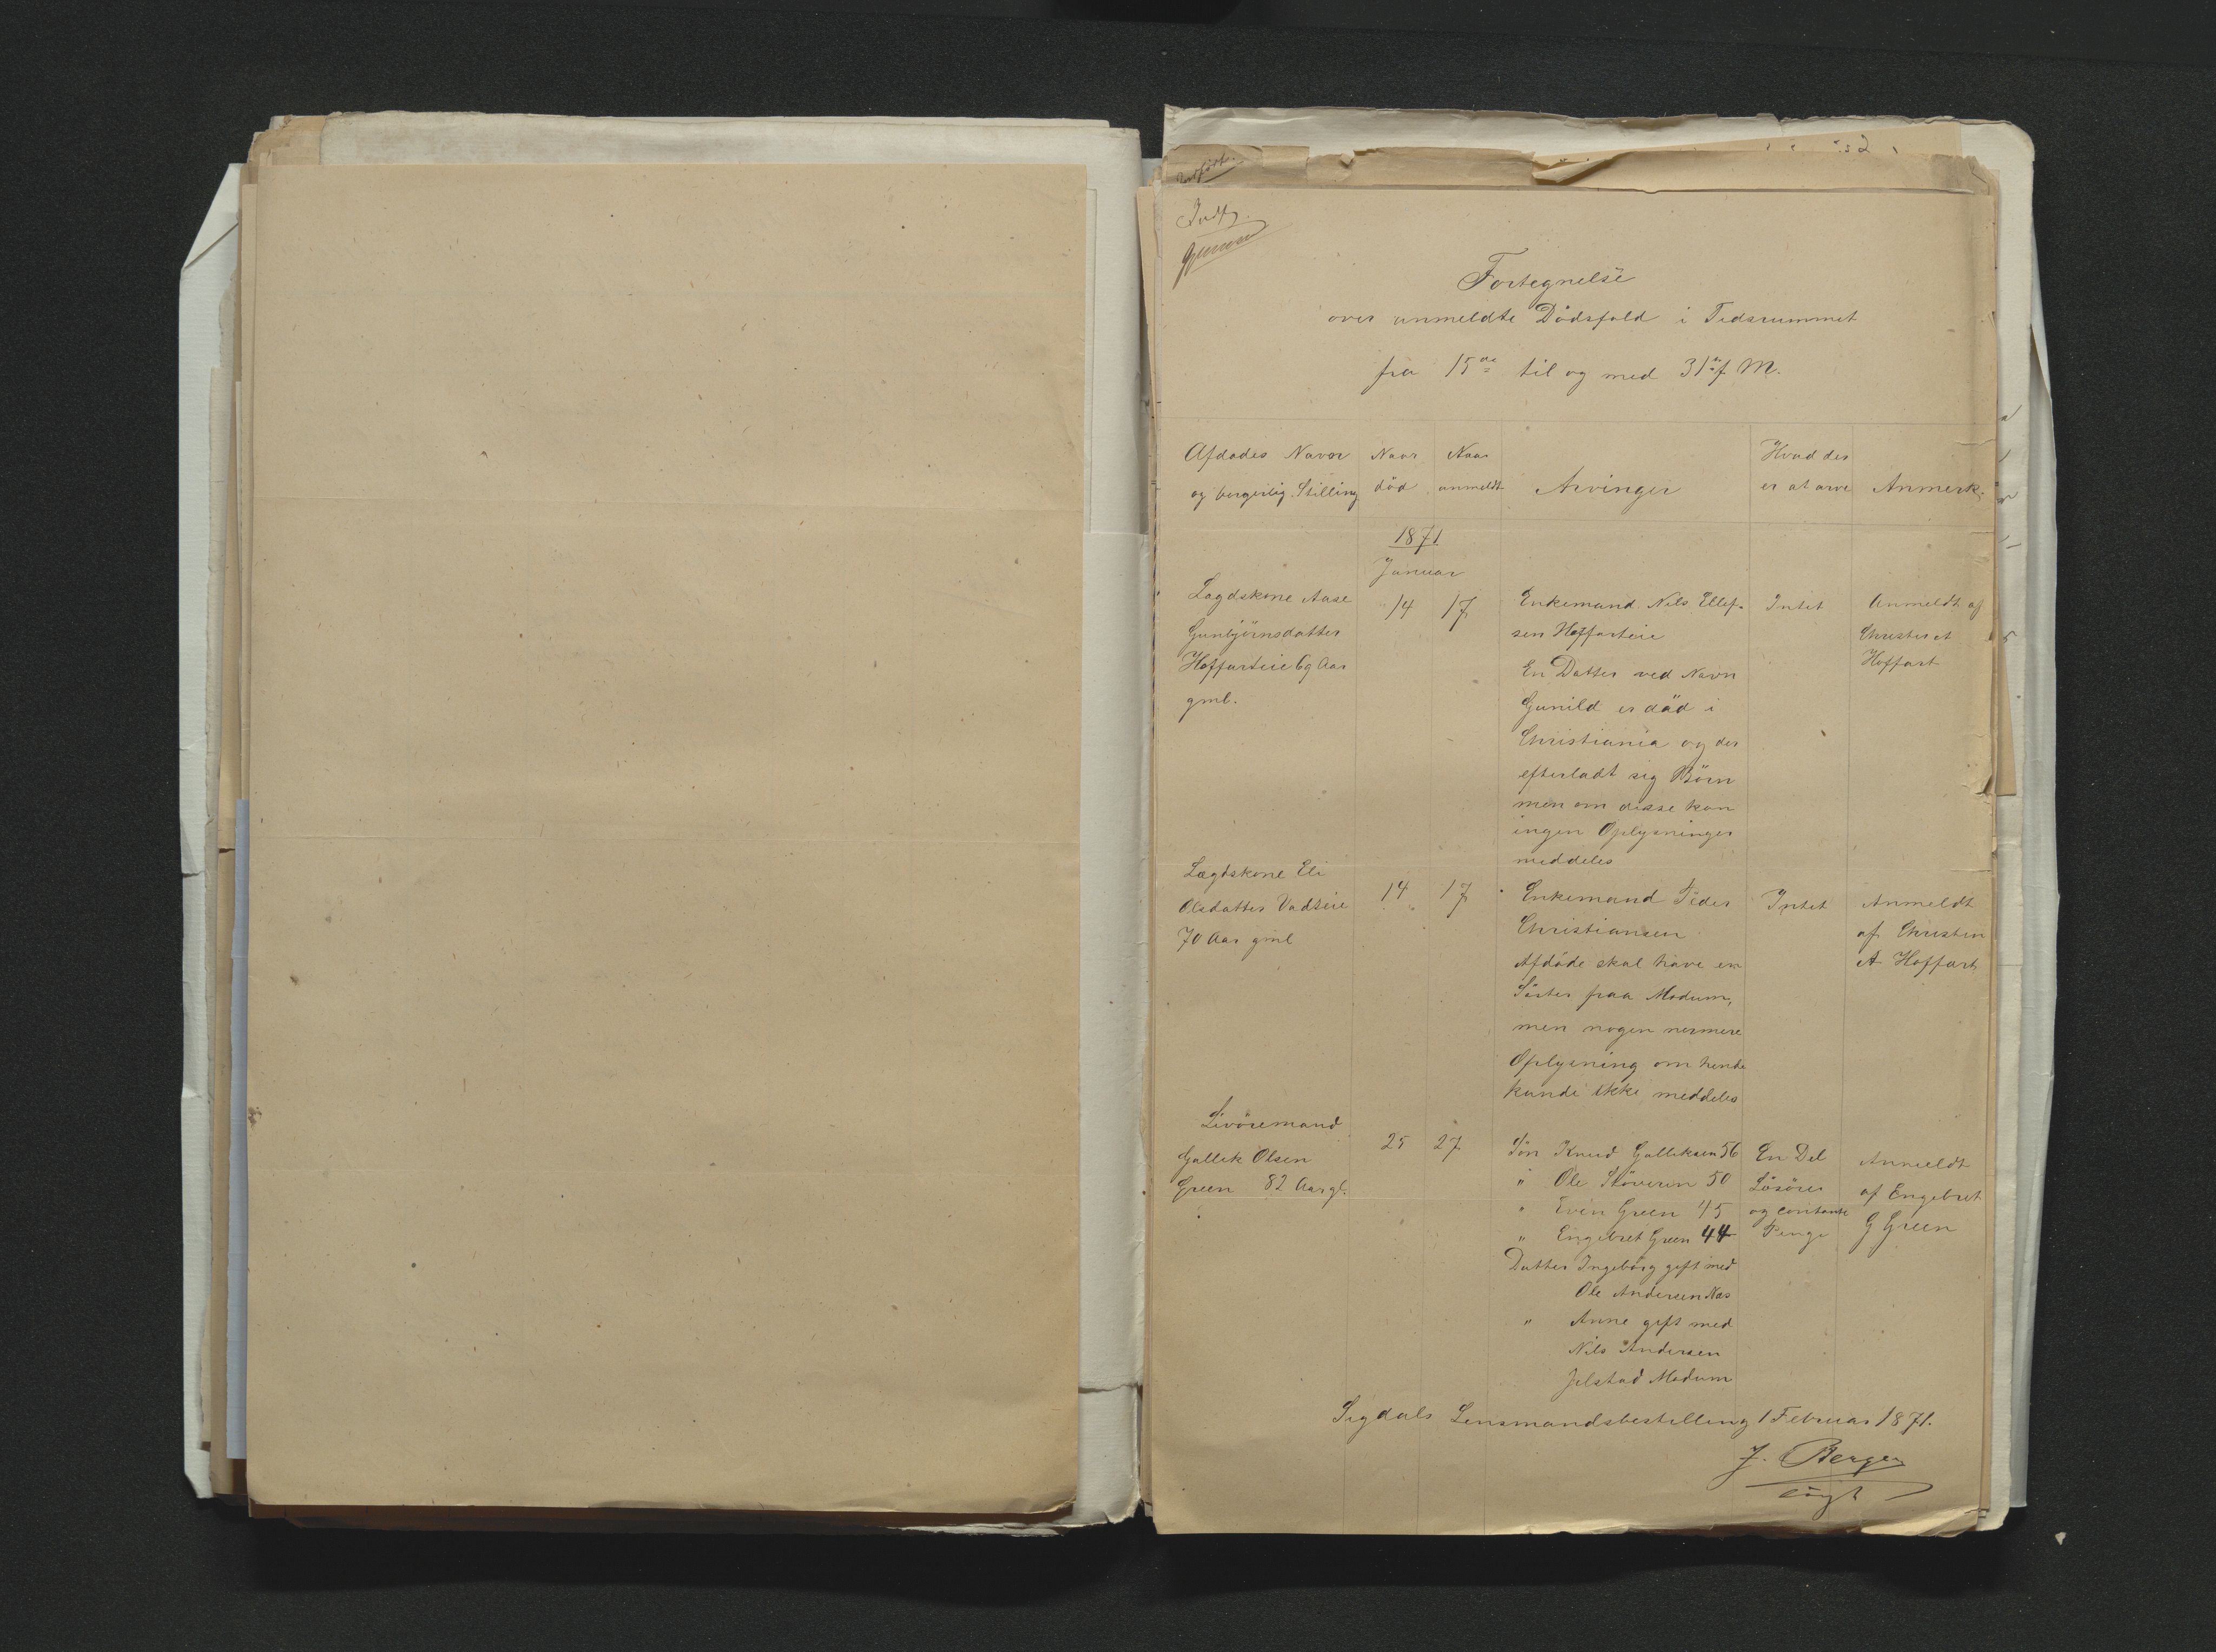 Indf.
Fortegnelse
over anmeldte Dödsfald i Tidsrummet
fra 15de til og med 31te f. M.
Afdödes Navn
og borgerlig Stilling
Naar
död
Naar
anmeldt
Arvinger
Hvad der
er at arve
Anmerk.
1871
Januar
Lægdskone Aase
Gunbjörnsdatter
Hoffarteie 69 Aar
gml.
14
17
Enkemand Nils Ellef-
sen Hoffarteie
En Datter ved Navn
Gunild er död i
Christiania og der
efterladt sig Börn
men om disse kan
ingen Oplysninger
meddeles
Intet
Anmeldt af
Christen A
Hoffart
Lægdskone Eli
Olsdatter Vadseie
70 Aar gml
14
17
Enkemand Peder
Christiansen
Afdöde skal have en
Söster paa Modum,
men nogen nermere
Oplysning om hende
kunde ikke meddeles
Intet
Anmeldt
af Christen
A Hoffart
Livöremand
Gullik Olsen
Green 82 Aar gl.
25
27
Sön Knud Gulliksen 56
" Ole Stöveren 50
" Even Green 45
" Engebret Green 44
Datter Ingebörg gift med
Ole Andersen Næs
" Anne gift med
Nils Andersen
Jelstad Modum
En Del
Lösöre
og contante
Penge
Anmeldt
af Engebret
G Green
Sigdals Lensmandsbestilling 1 Februar 1871.
J. Berger